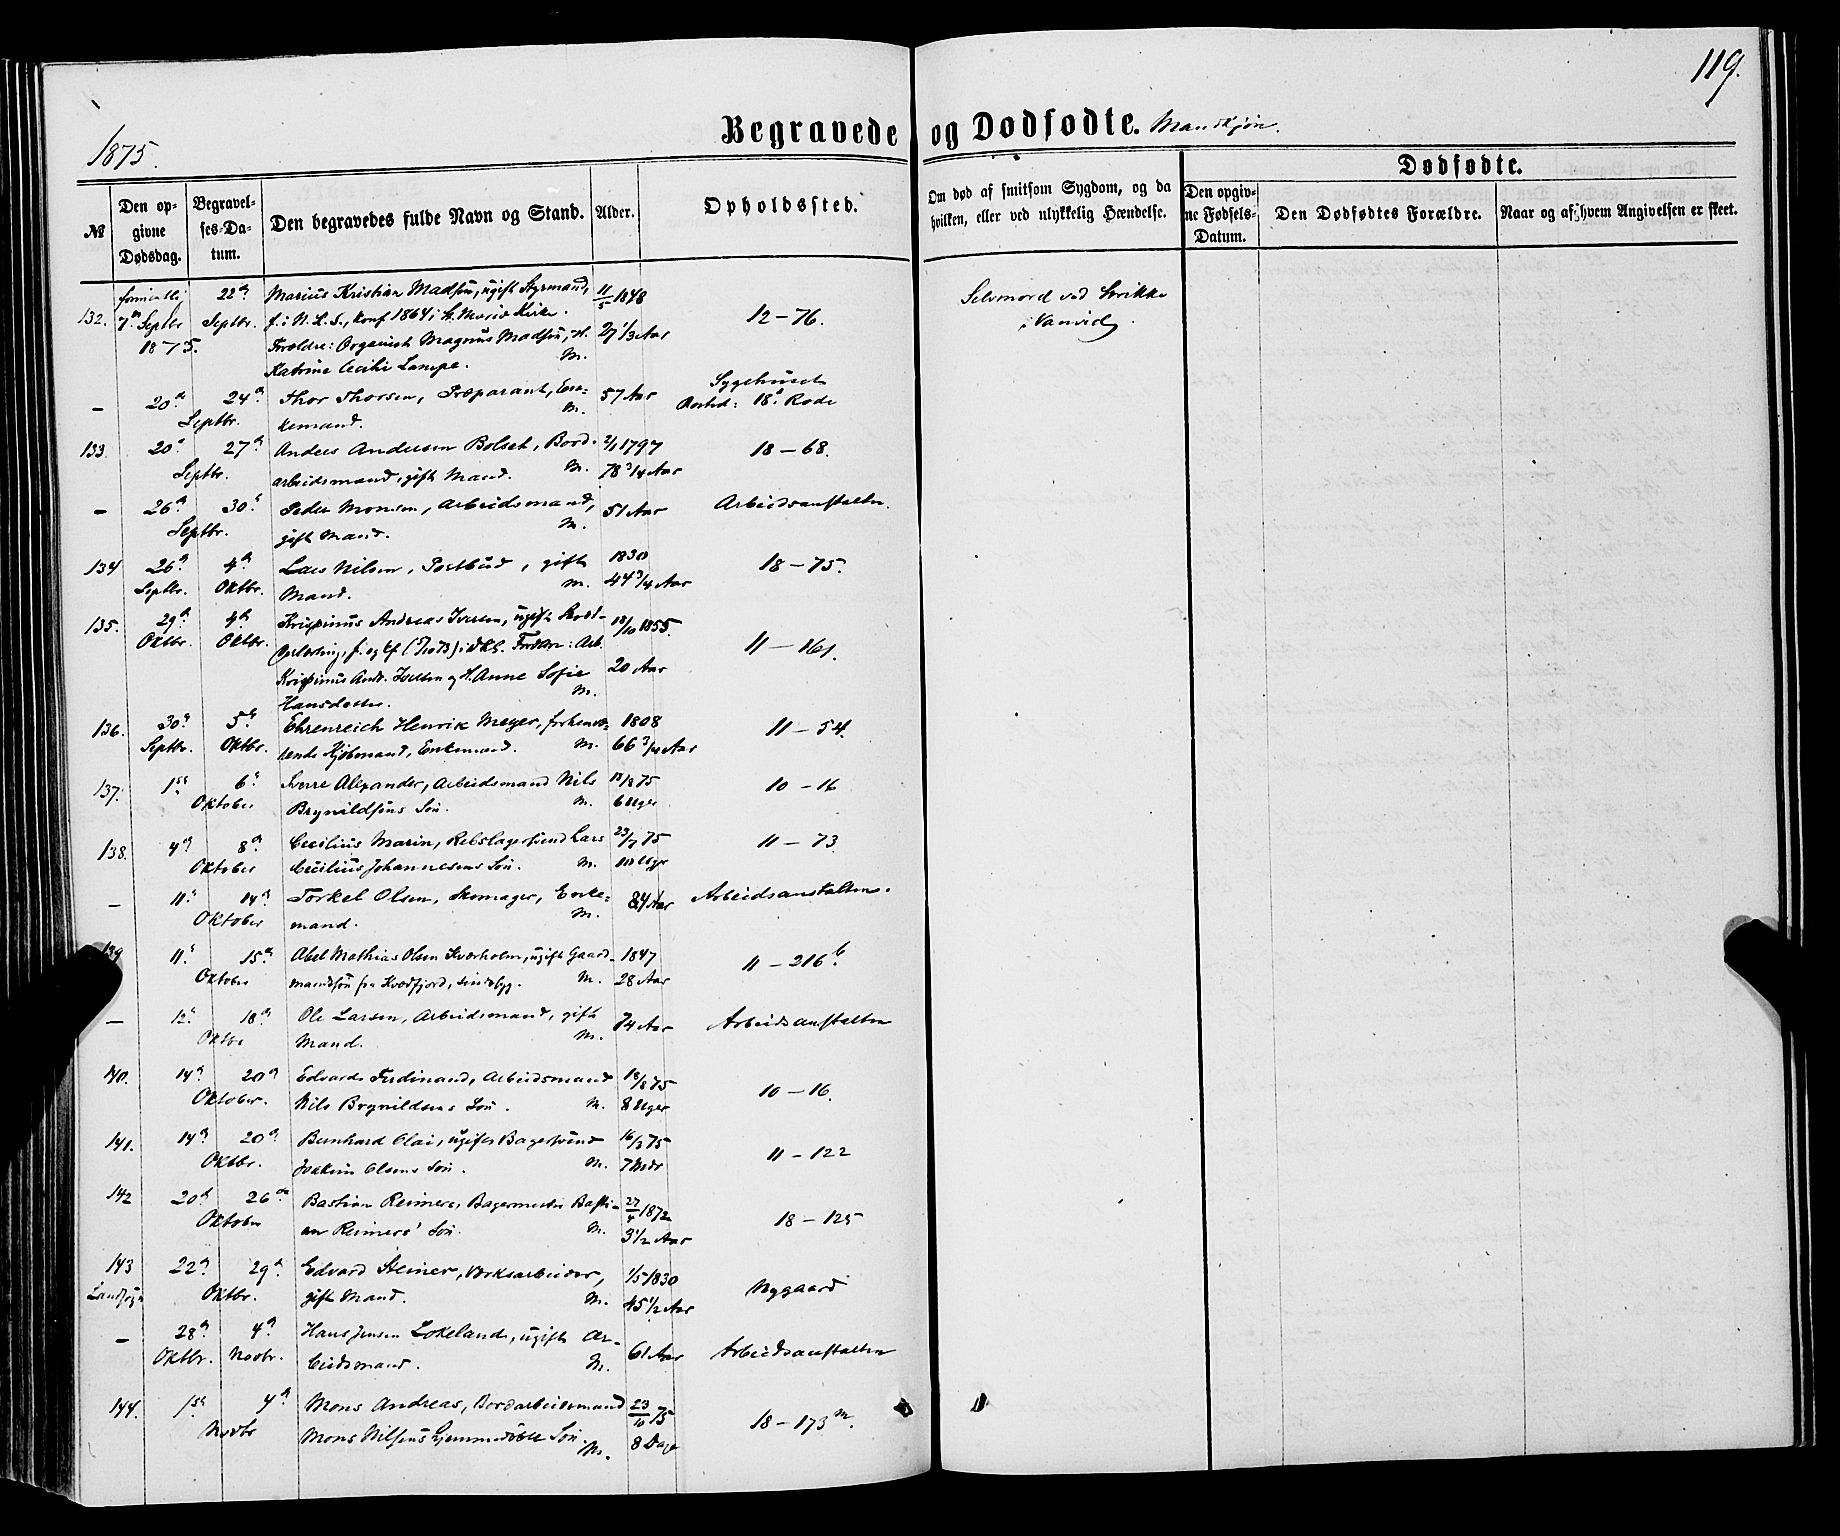 119.
1875.
Begravede og Dødfødte. Mandkjøn.
№
Den opgivne Dødsdag.
Begravelses-Datum.
Den begravedes fulde Navn og Stand.
Alder.
Opholdssted.
Om død af smitsom Sygdom, og da hvilken, eller ved ulykkelig Hændelse.
Dødfødte.
Den opgivne Fødsels-Datum.
Den Dødfødtes Forældre.
Naar og af hvem Angivelsen er skeet.
132. 7de Septbr 1875. 22de Septbr.
Marius Kristian Madsøn, ugift Styrmand, 11/5 1848
f. i N. K. S., konf 1864 i St. Maria Kirke. 27 1/3 Aar 12 – 76.
Forældre: Organist Magnus Madsøn, H. M.
Katrine Cecilie Lampe.
Selvmord ved
i Vanvid.
– 20de 24de Septbr.
Thor Thorsen, Præparant, Enke- M. 57 Aar Sygehuset
kemand. 18d Rode
133. 20d 27de Septbr.
Anders Andersen Bolset, Bord- 2/1 1797 18 – 68.
arbeidsmand, gift Mand. M. 78 3/4 Aar
– 26de 30d Septbr.
Peder Monsen, Arbeidsmand, M. 51 Aar Arbeidsanstalten.
gift Mand.
134 26de Septbr. 4de Oktbr.
Lars Nilsen, Postbud, gift 1830 18 – 75.
Mand. M. 44 3/4 Aar
135. 29de Oktbr. 4de Oktbr.
Krispinus Andreas Iversen, ugift 18/10 1855. 11 – 161.
Krispinus Andr. Iversen og H. Anne Sofie M. 20 Aar
Hansdatter.
136. 30d Septbr. 5d Oktbr.
Ehrenreich Henrik Meyer, forhenvæ- 1808 11 – 54.
rende Kjøbmand, Enkemand. M. 66 3/4 Aar
137. 1ste 6d Oktober
Sverre Alexander, Arbeidsmand Nils 18/8 75 10 – 16
Brynildsøns Søn. M. 6 Uger
138. 4de 8de Oktober
Cecilius Marin, Rebslagersvend Lars 23/7 75 11 – 73
Cecilius Johannesens Søn. M. 10 Uger
– 11d 14de Oktober
Torkel Olsen, Skomager, Enke- M. 84 Aar Arbeidsanstalten.
mand.
139 11d 15de Oktober
Abel Mathias Olsen Kvarholm, ugift Gaard- 1847 11 – 216b.
mandsøn fra Kvædfjord, sindssyg. M. 28 Aar
– 12d 18de Oktbr
Ole Larsen, Arbeidsmand, gift M. 74 Aar Arbeidsanstalten
Mand.
140. 14de 20de Oktober.
Edvard Ferdinand, Arbeidsmand 18/8 75 10 – 16.
Nils Brynildsens Søn. M. 8 Uger
141. 14de 20de Oktbr.
Bernhard Olai, ugift Bagersvend 16/3 75 11 – 122
Joakim Olsens Søn. M. 7 Mdr
142 20d 26de Oktober
Bastian Reimers, Bagermester Basti- 27/4 1872 18 – 125
an Reimers' Søn. M. 3 1/2 Aar
143 Landsogn 22de 29de Oktbr.
Edvard Steiner, Værksarbeider, 1/5 1830 Nygaard
gift Mand. M. 45 1/2 Aar
– 28de Oktbr. 4de Novbr.
Hans Jensen Lokeland, ugift Ar- M. 61 Aar Arbeidsanstalten
beidsmand.
144. 1ste 4de Novbr
Mons Andreas, Bordarbeidsmand 23/10 75 18 – 173m.
Mons Nilsens Søn. M. 8 Dage